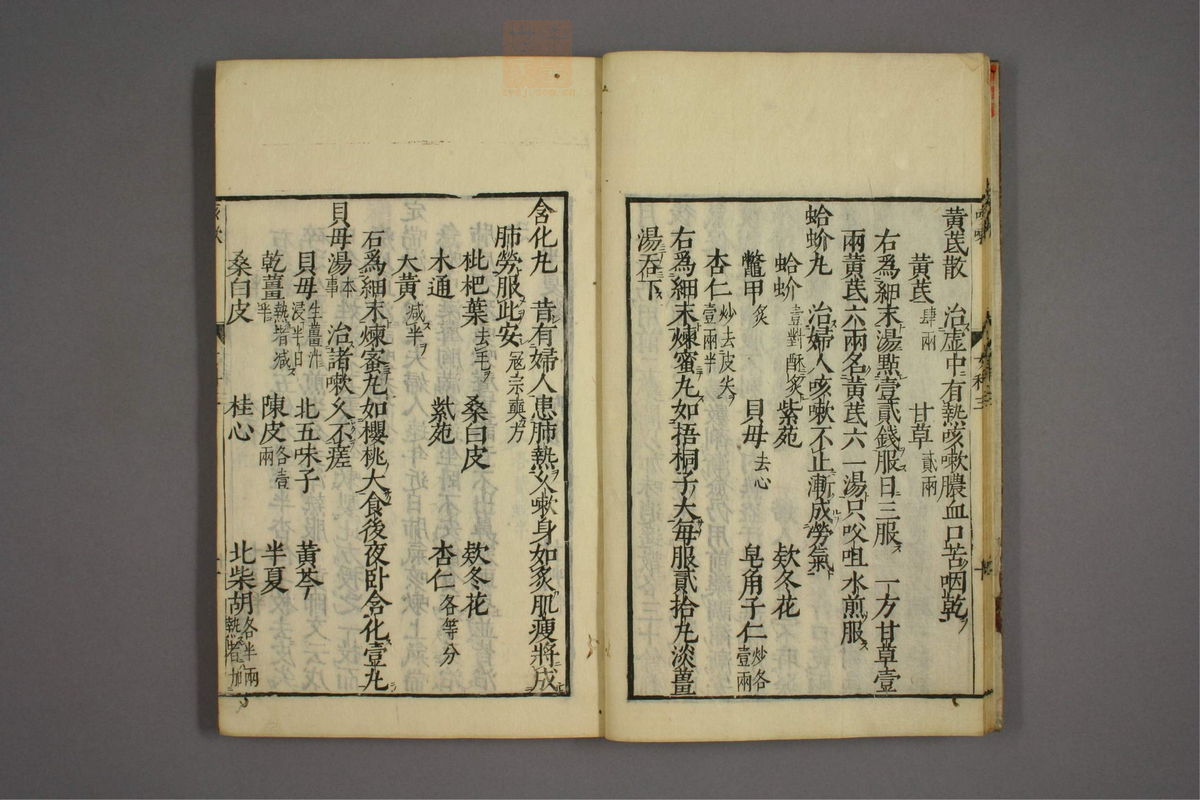 黄芪散　治虚中有熱咳嗽膿血口苦咽乾
黄芪肆兩　甘草貳兩
右爲細末湯點壹貳錢服日三服　一方甘草壹
兩黄芪六兩名黄芪六一湯只㕮咀水煎服
蛤蚧丸　治婦人咳嗽不止漸成勞氣
蛤蚧壹對酥炙　紫菀　欵冬花
鱉甲炙　貝母去心　皂角子仁炒各壹兩
杏仁炒去皮尖壹兩半
右爲細末煉蜜丸如梧桐子大每服貳拾丸淡薑
湯吞下
含化丸　昔有婦人患肺熱久嗽身如炙肌瘦將成
肺勞服此安宼宗奭方
枇杷葉去毛　桑白皮　欵冬花
木通　紫菀　杏仁各等分
大黄減半
右爲細末煉蜜丸如櫻桃大食後夜卧含化壹丸
貝母湯本事　治諸嗽久不瘥
貝母生薑汁浸半日　北五味子　黄芩
乾薑熱者減半　陳皮各壹兩　半夏
桑白皮　桂心　北柴胡各半兩熱者加